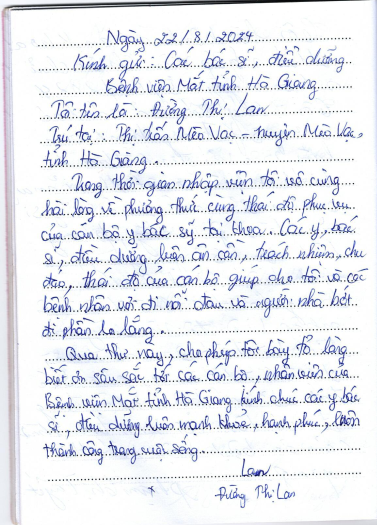 Ngày 22/8/2024
Kính gửi: Các bác sĩ, điều dưỡng
Bệnh viện Mắt tỉnh Hà Giang
Tôi tên là: Đường Thị Lan
Trú tại: Thị trấn Mèo Vạc – huyện Mèo Vạc,
tỉnh Hà Giang.
Trong thời gian nhập viện tôi vô cùng
hài lòng về phương thức cùng thái độ phục vụ
của cán bộ y bác sỹ tại khoa. Các y, bác
sĩ, điều dưỡng luôn ân cần, trách nhiệm, chu
đáo, thái độ của cán bộ giúp cho tôi và các
bệnh nhân vơi đi nỗi đau và người nhà bớt
đi phần lo lắng.
Qua thư này, cho phép tôi bày tỏ lòng
biết ơn sâu sắc tới các cán bộ, nhân viên của
Bệnh viện Mắt tỉnh Hà Giang kính chúc các y bác
sĩ, điều dưỡng luôn mạnh khoẻ, hạnh phúc, luôn
thành công trong cuộc sống.
Lan
Đường Thị Lan